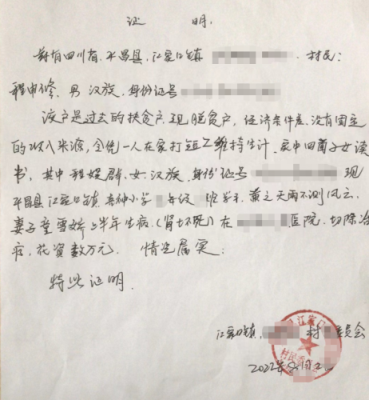 证 明
兹有四川省,平昌县,江家口镇 村民:
程中修、男 汉族,身份证号
该户是过去的扶贫户,现脱贫户,经济条件差,没有固定
的收入来源,全凭一人在家打短工维持生计,家中四个子女读
书,其中程 群,女,汉族,身份证号 现
平昌县江家口镇 小学 年级 班学生,兼之天雨不测风云,
妻子 雪 上半年生病(肾坏死)在 医院,切除治
疗,花资数万元. 情况属实.
特此证明.
江家口镇, 村 委员会
2022年 月2